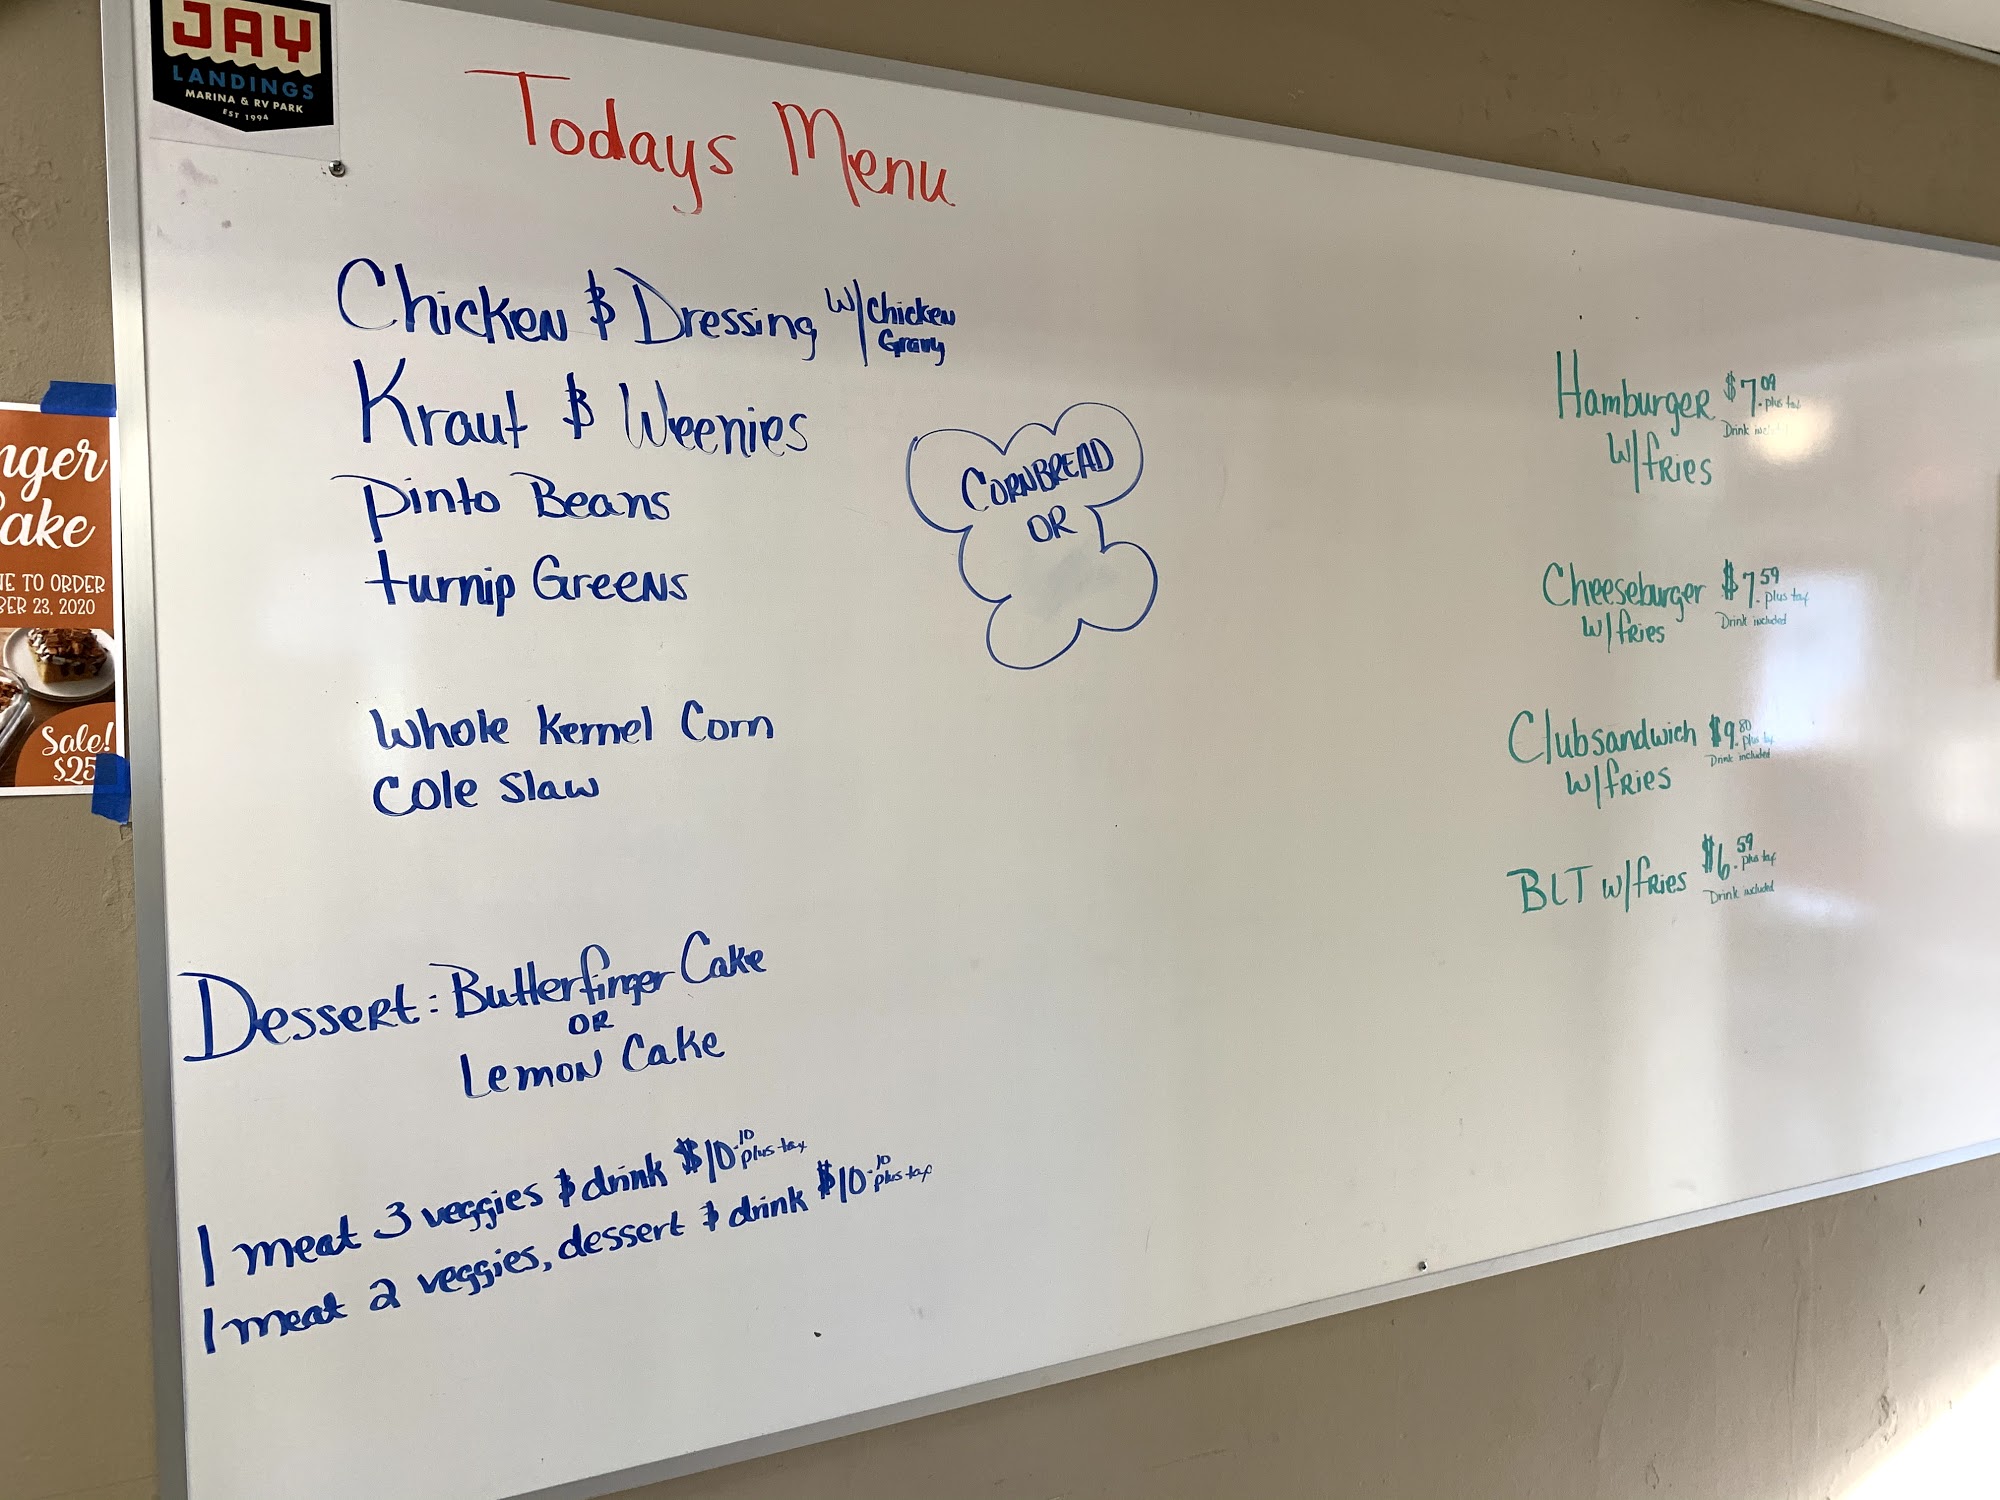 JAY
LANDINGS
MARINA & RV PARK
EST 1994
Todays Menu
Chicken & Dressing w/chicken
Gravy
Kraut & Weenies
Pinto Beans
turnip Greens
CORNBREAD
OR
Whole Kernel Corn
Cole Slaw
Dessert: Butterfinger Cake
OR
Lemon Cake
1 meat 3 veggies & drink $10.10 plus tax
1 meat 2 veggies, dessert & drink $10.10 plus tax
Hamburger $7.09 plus tax
Drink
w/fries
Cheeseburger $7.59 plus tax
w/fries Drink included
Clubsandwich $9.80 plus tax
Drink included
w/fries
BLT w/fries $6.59 plus tax
Drink included
nger
ake
NE TO ORDER
BER 23, 2020
Sale!
$25